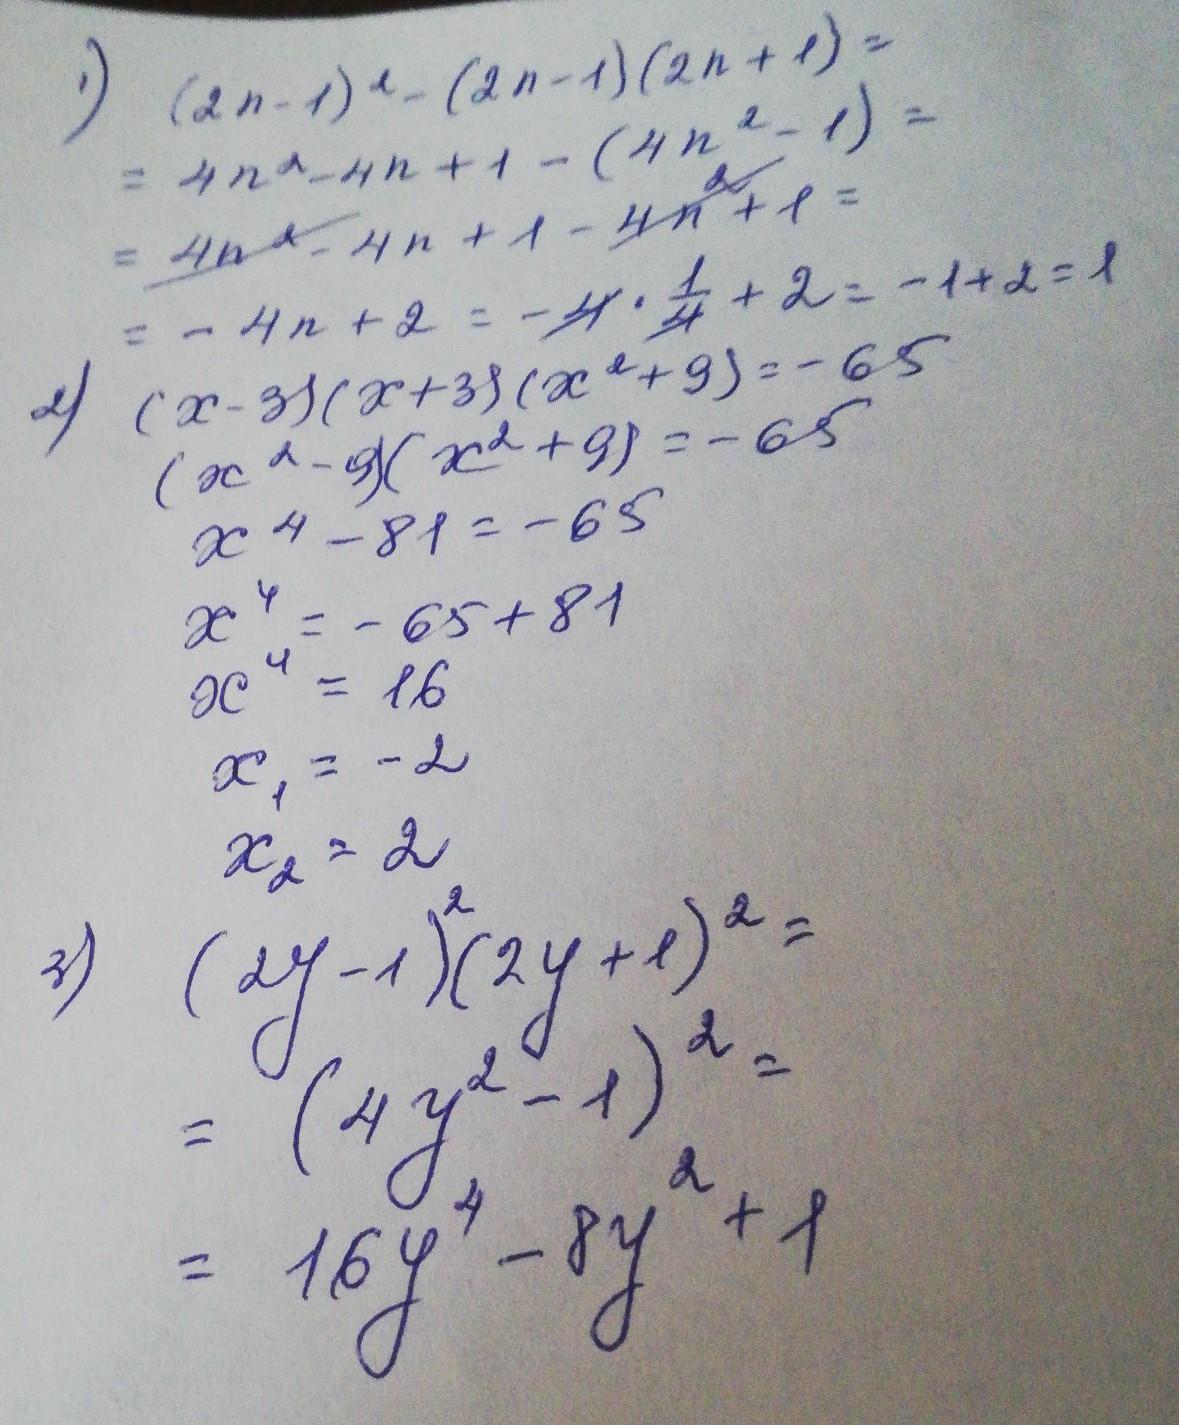 1) (2n-1)² - (2n-1)(2n+1) =
= 4n² - 4n + 1 - (4n² - 1) =
= 4n² - 4n + 1 - 4n² + 1 =
= - 4n + 2 = - 4 · 1/4 + 2 = -1+2=1
2) (x-3)(x+3)(x²+9)=-65
(x²-9)(x²+9)=-65
x⁴-81=-65
x⁴=-65+81
x⁴=16
x₁=-2
x₂=2
3) (2y-1)²(2y+1)²=
= (4y²-1)²=
= 16y⁴-8y²+1